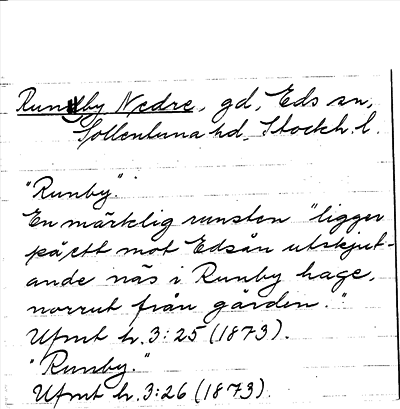 Runby Nedre, gd, Eds sn,
Sollentuna hd, Stockh. l.
"Runby".
En märklig runsten "ligger
på ett mot Edsån utskjut-
ande näs i Runby hage,
norrut från gården."
Ufmt h. 3:25 (1873).
"Runby."
Ufmt h. 3:26 (1873).